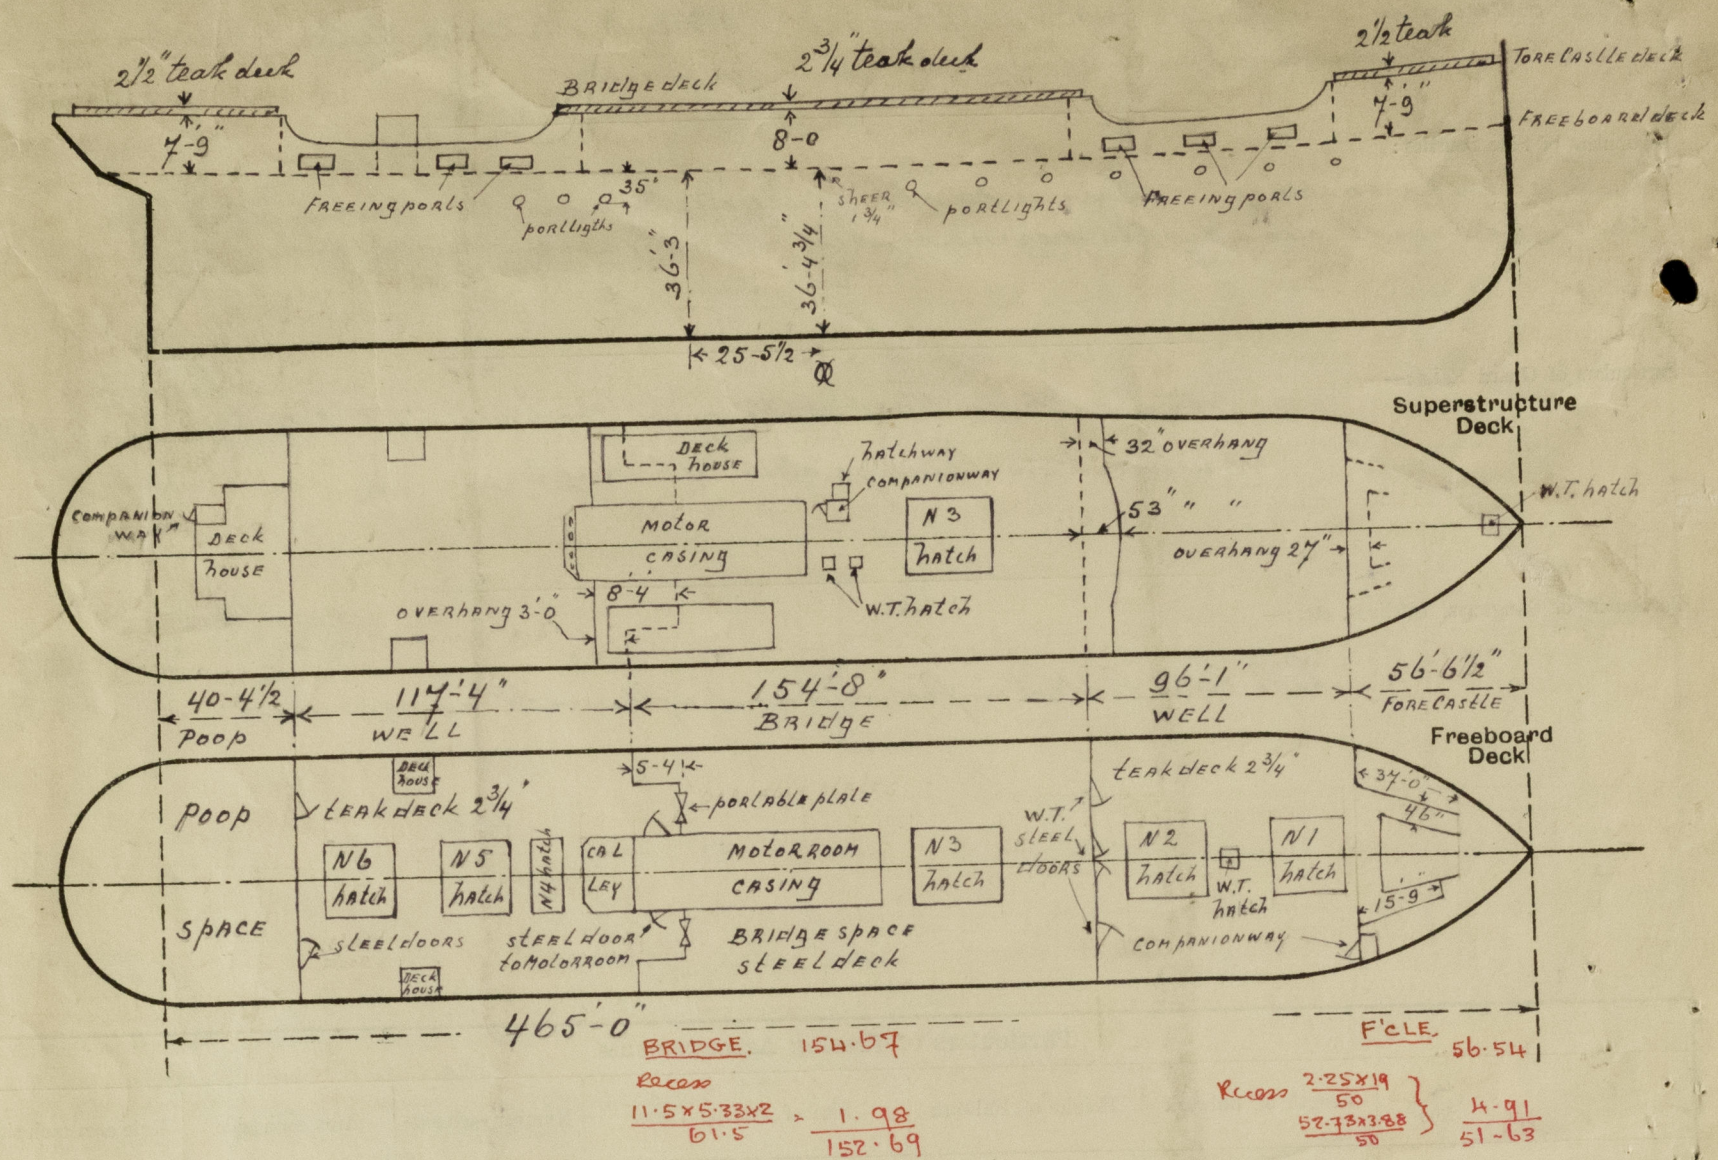 2½" teak deck
2¾" teak deck
2½ teak
BRidgedeck
ToreCastledeck
7'-9"
8-0
7-9"
FREEboARddeck
35"
FREEingpoRts
portligths
sheer
1¾"
portlights
FREEingpoRts
36'-3"
36'-4¾"
25-5½
Superstructure
Deck
Deck
house
hatchway
companionway
32" overhang
W.T. hatch
companion
way
Deck
house
Motor
casing
N3
hatch
53" " "
overhang 27"
8'-4"
overhang 3'-0"
W.T. hatch
40-4½
117'-4"
154'-8"
96'-1"
56'-6½"
Poop
WELL
BRidge
WELL
ForeCastle
Freeboard
Deck
Poop
Deck
house
teakdeck 2¾"
5-4
portable plate
teakdeck 2¾"
37'-0"
46"
W.T.
steel
doors
N6
hatch
N5
hatch
N4 hatch
CAL
LEY
Motorroom
casing
N3
hatch
N2
hatch
W.T.
hatch
N1
hatch
15'-9"
space
steeldoors
steeldoor
toMotorroom
BRidgespace
steeldeck
companionway
Deck
house
465'-0"
BRIDGE. 154.67
Recess
11.5x5.33x2
61.5
= 1.98
152.69
F'CLE.
56.54
Recess 2.25x19
50
52.73x3.88
50
4.91
51-63